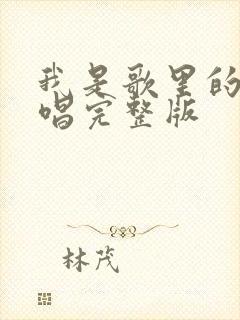 我是歌里的
唱完整版
林茂